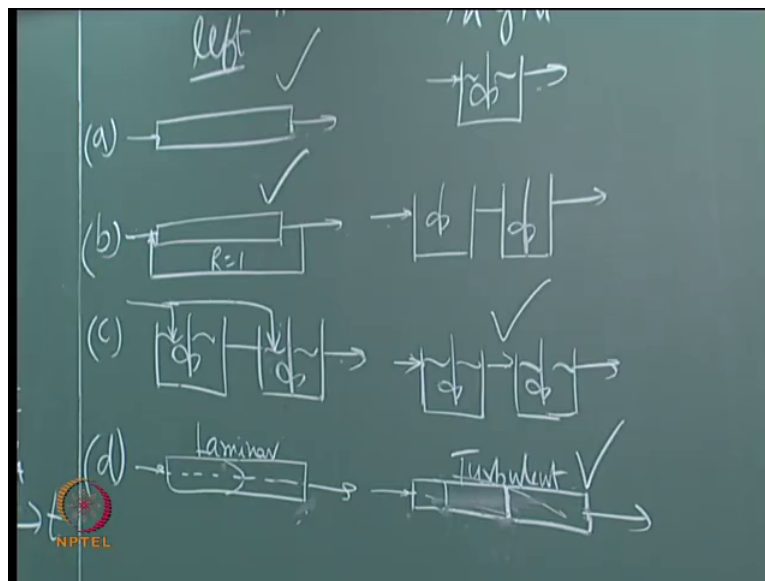 left
(a)
(b)
R=1
(c)
(d) Laminar Turbulent
t
NPTEL